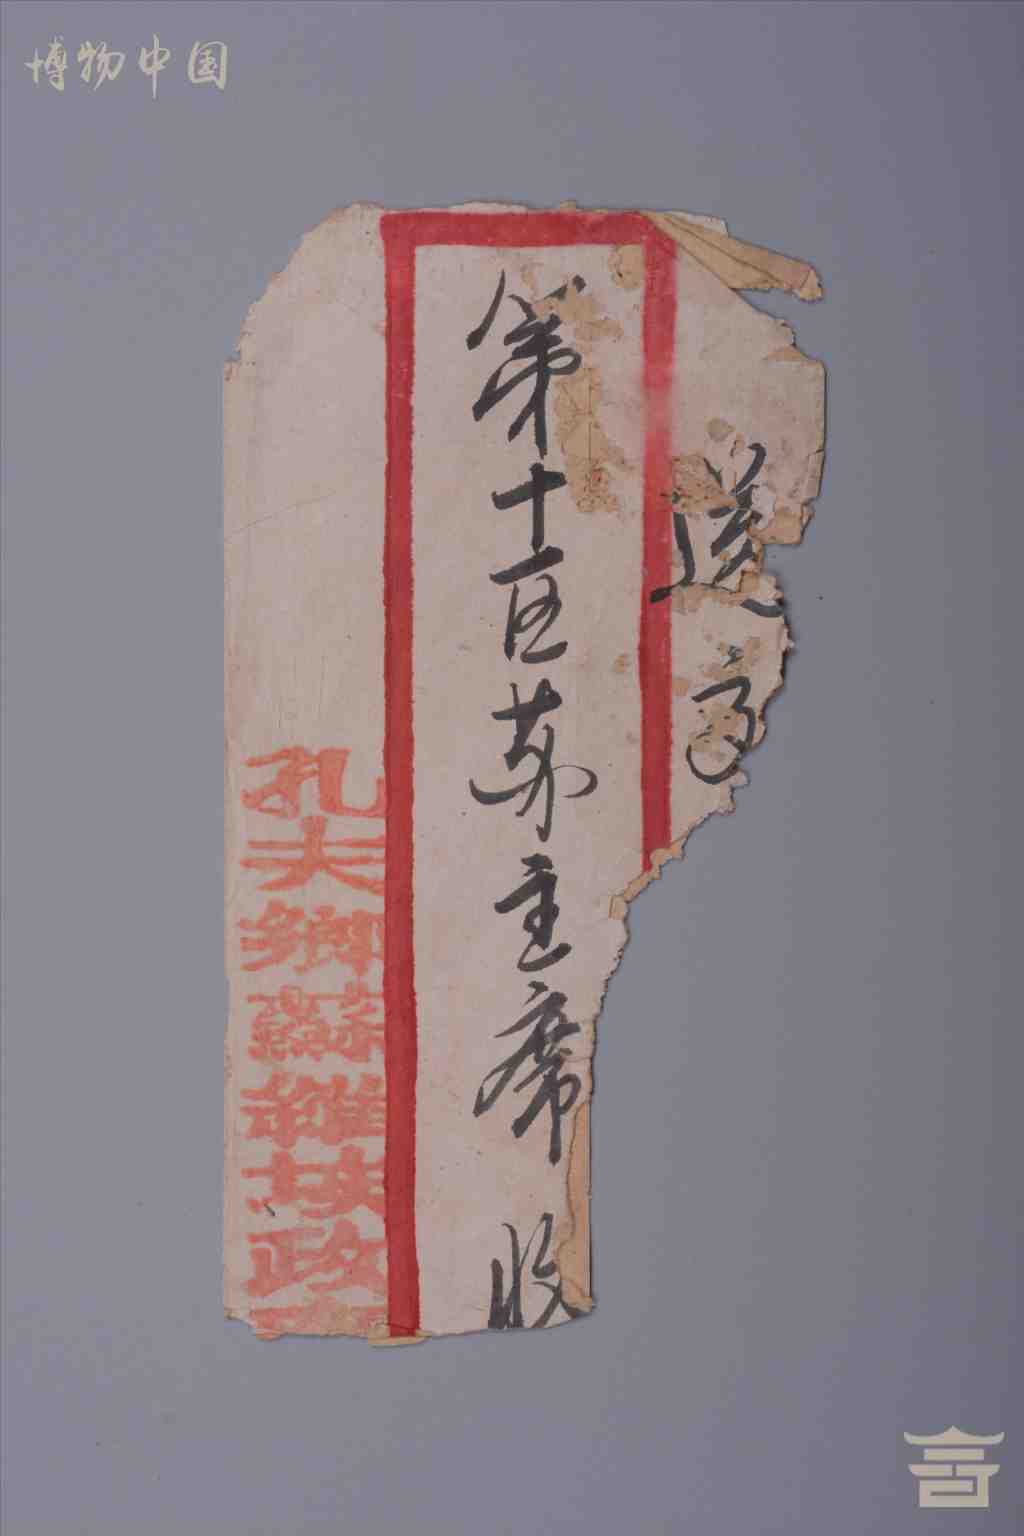 博物中国
送交
第十区苏主席 收
孔夫鄉蘇維扶政